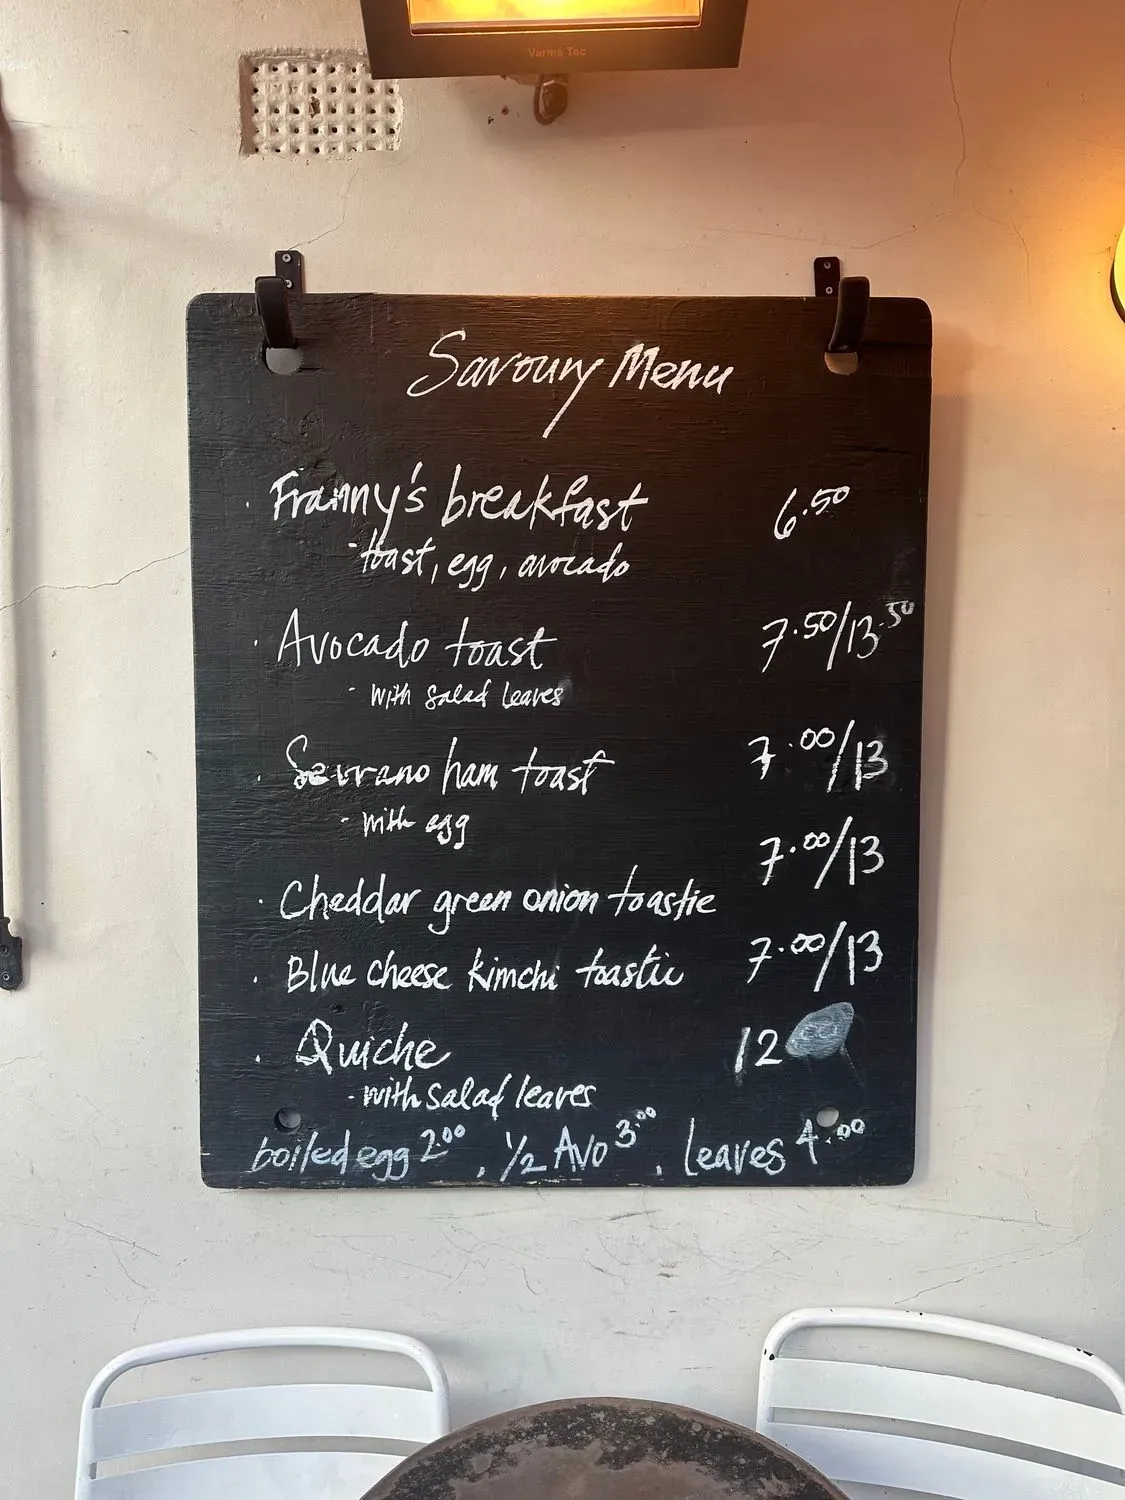 Varma Tec
Savoury Menu
· Franny's breakfast 6.50
- toast, egg, avocado
· Avocado toast 7.50/13.50
- with salad leaves
· Serrano ham toast 7.00/13
- with egg
7.00/13
· Cheddar green onion toastie
· Blue cheese kimchi toastie 7.00/13
· Quiche 12
- with salad leaves
boiled egg 2.00, 1/2 Avo 3.00, leaves 4.00